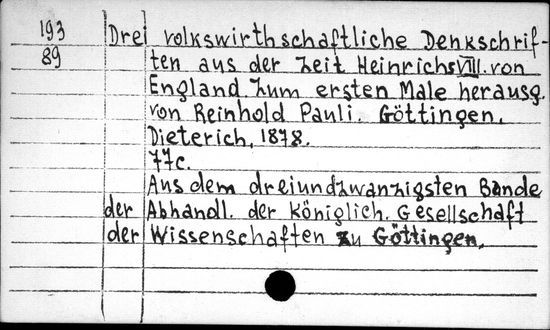 193 Drei volkswirthschaftliche Denkschrif-
89 ten aus der Zeit Heinrichs VIII. von
England zum ersten Male herausg.
von Reinhold Pauli. Göttingen,
Dieterich, 1878.
77c.
Aus dem dreiundzwanzigsten Bande
der Abhandl. der königlich. Gesellschaft
der Wissenschaften zu Göttingen.